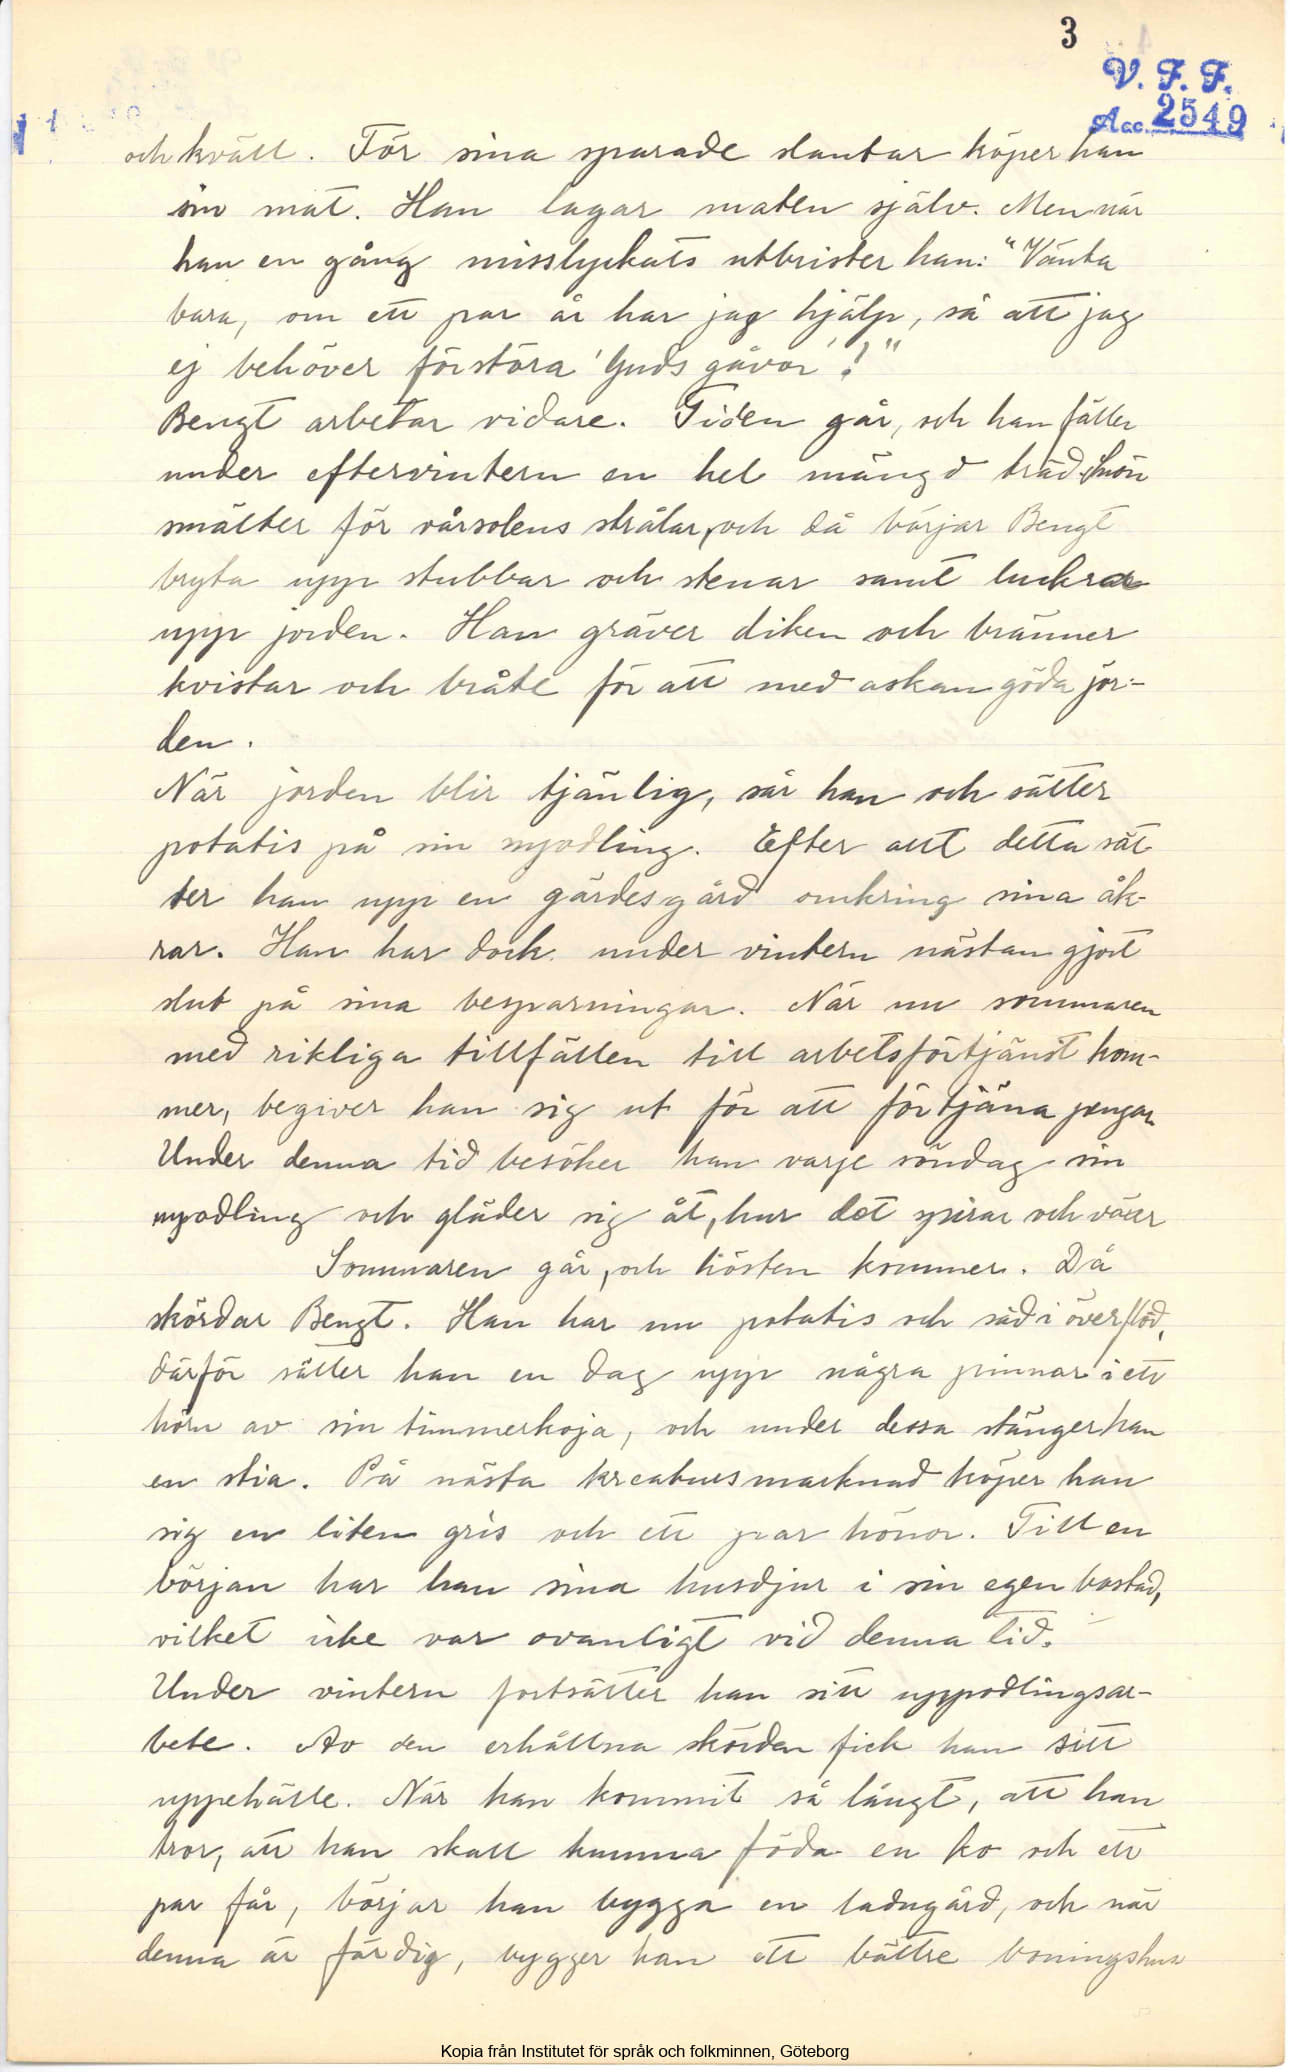 3
V. F. F.
Acc. 2549
och kväll. För sina sparade slantar köper han
sin mat. Han lagar maten själv. Men när
han en gång misslyckats utbrister han: "Vänta
bara, om ett par år har jag hjälp, så att jag
ej behöver förstöra 'Guds gåvor'!"
Bengt arbetar vidare. Tiden går, och han fäller
under eftervintern en hel mängd träd. Snön
smälter för vårsolens strålar, och då börjar Bengt
bryta upp stubbar och stenar samt luckrar
upp jorden. Han gräver diken och bränner
kvistar och bråte för att med askan göda jor-
den.
När jorden blir tjänlig, sår han och sätter
potatis på sin nyodling. Efter allt detta sät-
ter han upp en gärdesgård omkring sina åk-
rar. Han har dock under vintern nästan gjort
slut på sina besparningar. När nu sommaren
med rikliga tillfällen till arbetsförtjänst kom-
mer, begiver han sig ut för att förtjäna pengar.
Under denna tid besöker han varje söndag sin
nyodling och gläder sig åt, hur det spirar och växer
Sommaren går, och hösten kommer. Då
skördar Bengt. Han har nu potatis och säd i överflöd,
därför sätter han en dag upp några pinnar i ett
hörn av sin timmerkoja, och under dessa stänger han
en stia. På nästa kreatursmarknad köper han
sig en liten gris och ett par hönor. Till en
början har han sina husdjur i sin egen bostad,
vilket icke var ovanligt vid denna tid.
Under vintern fortsätter han sitt uppodlingsar-
bete. Av den erhållna skörden fick han sitt
uppehälle. När han kommit så långt, att han
tror, att han skall kunna föda en ko och ett
par får, börjar han bygga en ladugård, och när
denna är färdig, bygger han ett bättre boningshus
Kopia från Institutet för språk och folkminnen, Göteborg